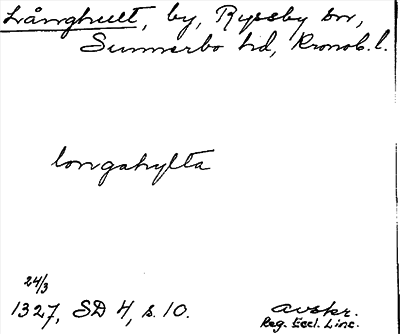 Långhult, by, Ryssby sn,
Sunnerbo hd, Kronob. l.
longahylta
24/3
1327, SD 4, s. 10.
avskr.
Reg. Eccl. Linc.